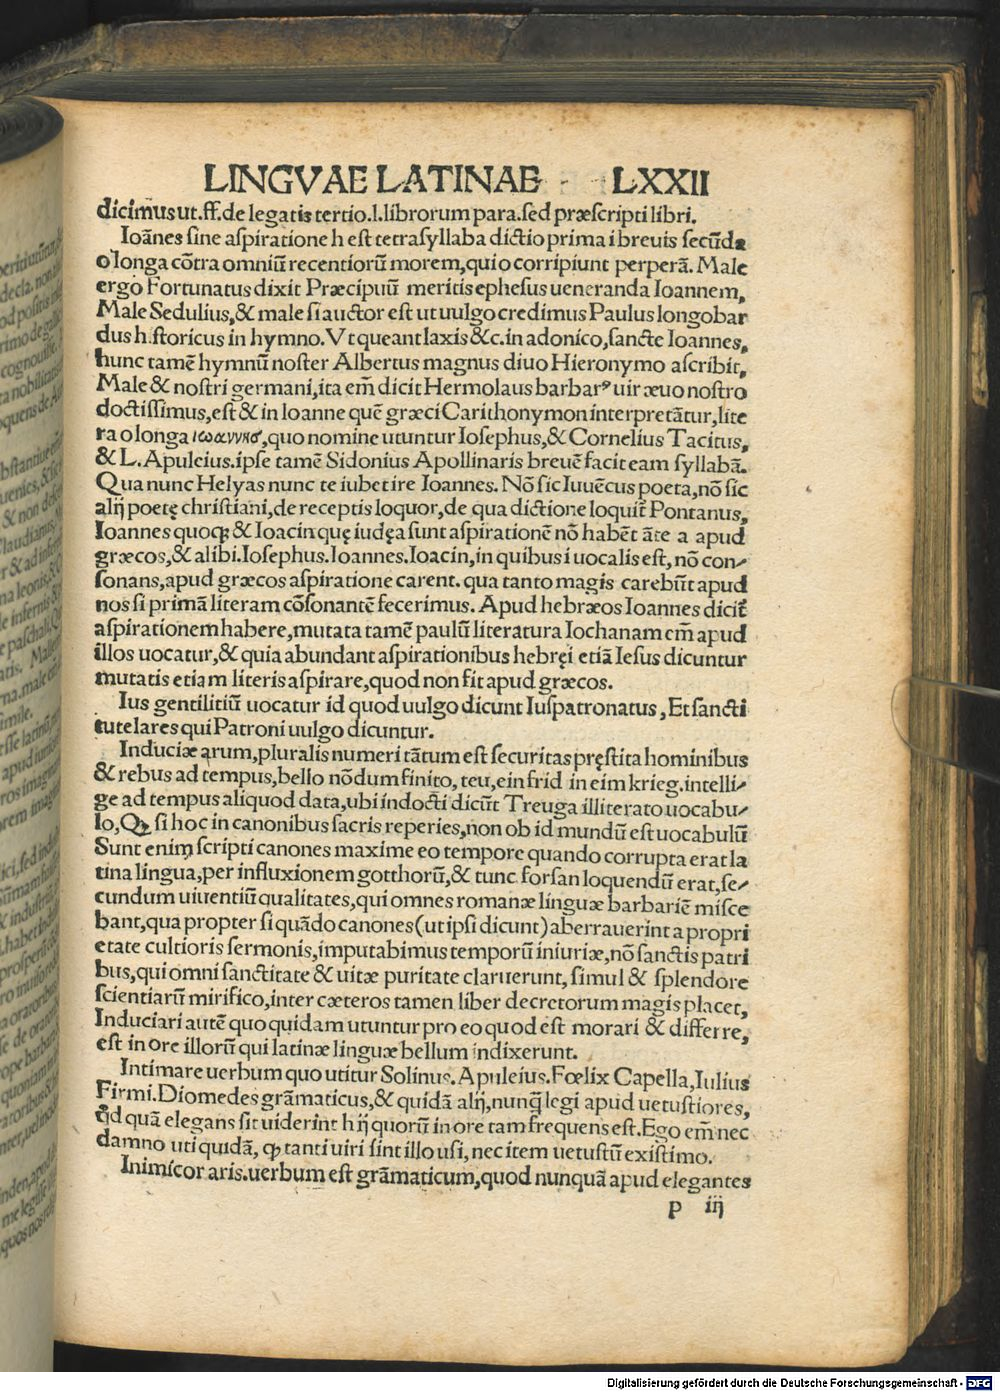 LINGVAE LATINAE LXXII
dicimus ut.ff.de legatis tertio.l.librorum para.sed præscripti libri.
Ioānes sine aspiratione h est tetrasyllaba dictio prima i breuis secūda
o longa cōtra omniū recentiorū morem,qui o corripiunt perperā. Male
ergo Fortunatus dixit Præcipuū meritis ephesus ueneranda Ioannem,
Male Sedulius,& male si auctor est ut uulgo credimus Paulus longobar
dus historicus in hymno. Vt queant laxis &c.in adonico,sancte Ioannes,
hunc tamē hymnū noster Albertus magnus diuo Hieronymo ascribit,
Male & nostri germani,ita em̄ dicit Hermolaus barbarꝰ uir æuo nostro
doctissimus,est & in Ioanne quē græci Carithonymon interpretātur,lite
ra o longa ιωαννησ,quo nomine utuntur Iosephus,& Cornelius Tacitus,
& L. Apuleius.ipse tamē Sidonius Apollinaris breuē facit eam syllabā.
Qua nunc Helyas nunc te iubet ire Ioannes. Nō sic Iuuēcus poeta,nō sic
alij poetę christiani,de receptis loquor,de qua dictione loquit̃ Pontanus,
Ioannes quoqꝫ & Ioacin quę iudęa sunt aspirationē nō habēt āte a apud
græcos,& alibi.Iosephus.Ioannes.Ioacin,in quibus i uocalis est,nō con-
sonans,apud græcos aspiratione carent.qua tanto magis carebūt apud
nos si primā literam cōsonantē fecerimus. Apud hebræos Ioannes dicit̃
aspirationem habere,mutata tamē paulū literatura Iochanam em̄ apud
illos uocatur,& quia abundant aspirationibus hebręi etiā Iesus dicuntur
mutatis etiam literis aspirare,quod non fit apud græcos.
Ius gentilitiū uocatur id quod uulgo dicunt Iuspatronatus,Et sancti
tutelares qui Patroni uulgo dicuntur.
Induciæ arum,pluralis numeri tātum est securitas pręstita hominibus
& rebus ad tempus,bello nōdum finito,teu,ein frid in eim krieg.intelli-
ge ad tempus aliquod data,ubi indocti dicūt Treuga illiterato uocabu-
lo,Qꝫ si hoc in canonibus sacris reperies,non ob id mundū est uocabulū
Sunt enim scripti canones maxime eo tempore quando corrupta erat la
tina lingua,per influxionem gotthorū,& tunc forsan loquendū erat,se-
cundum uiuentiū qualitates,qui omnes romanæ linguæ barbariē misce
bant,qua propter si quādo canones(ut ipsi dicunt)aberrauerint a propri
etate cultioris sermonis,imputabimus temporū iniuriæ,nō sanctis patri
bus,qui omni sanctitate & uitæ puritate claruerunt,simul & splendore
scientiarū mirifico,inter cæteros tamen liber decretorum magis placet,
Induciari autē quo quidam utuntur pro eo quod est morari & differre,
est in ore illorū qui latinæ linguæ bellum indixerunt.
Intimare uerbum quo utitur Solinus.Apuleius.Fœlix Capella,Iulius
Firmi.Diomedes grāmaticus,& quidā alij,nunq̄ legi apud uetustiores,
qd quā elegans sit uiderint hij quorū in ore tam frequens est.Ego em̄ nec
damno uti quidā, ꝙ tanti uiri sint illo usi,nec item uetustū existimo.
Inimicor aris.uerbum est grāmaticum,quod nunquā apud elegantes
p iij
Digitalisierung gefördert durch die Deutsche Forschungsgemeinschaft - DFG